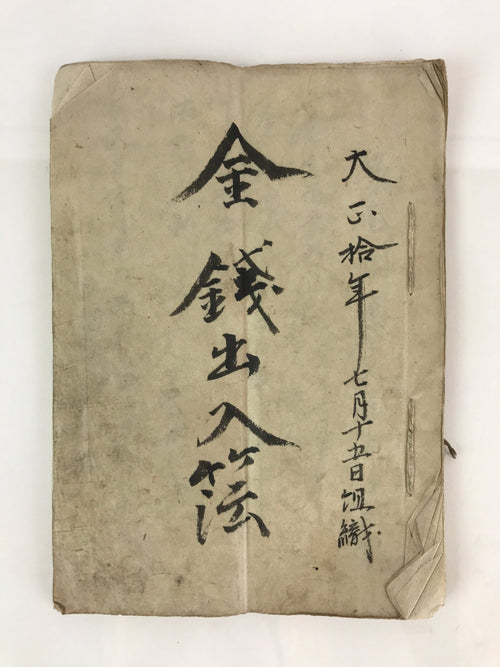 大正拾年七月十五日組織
金錢出入簿